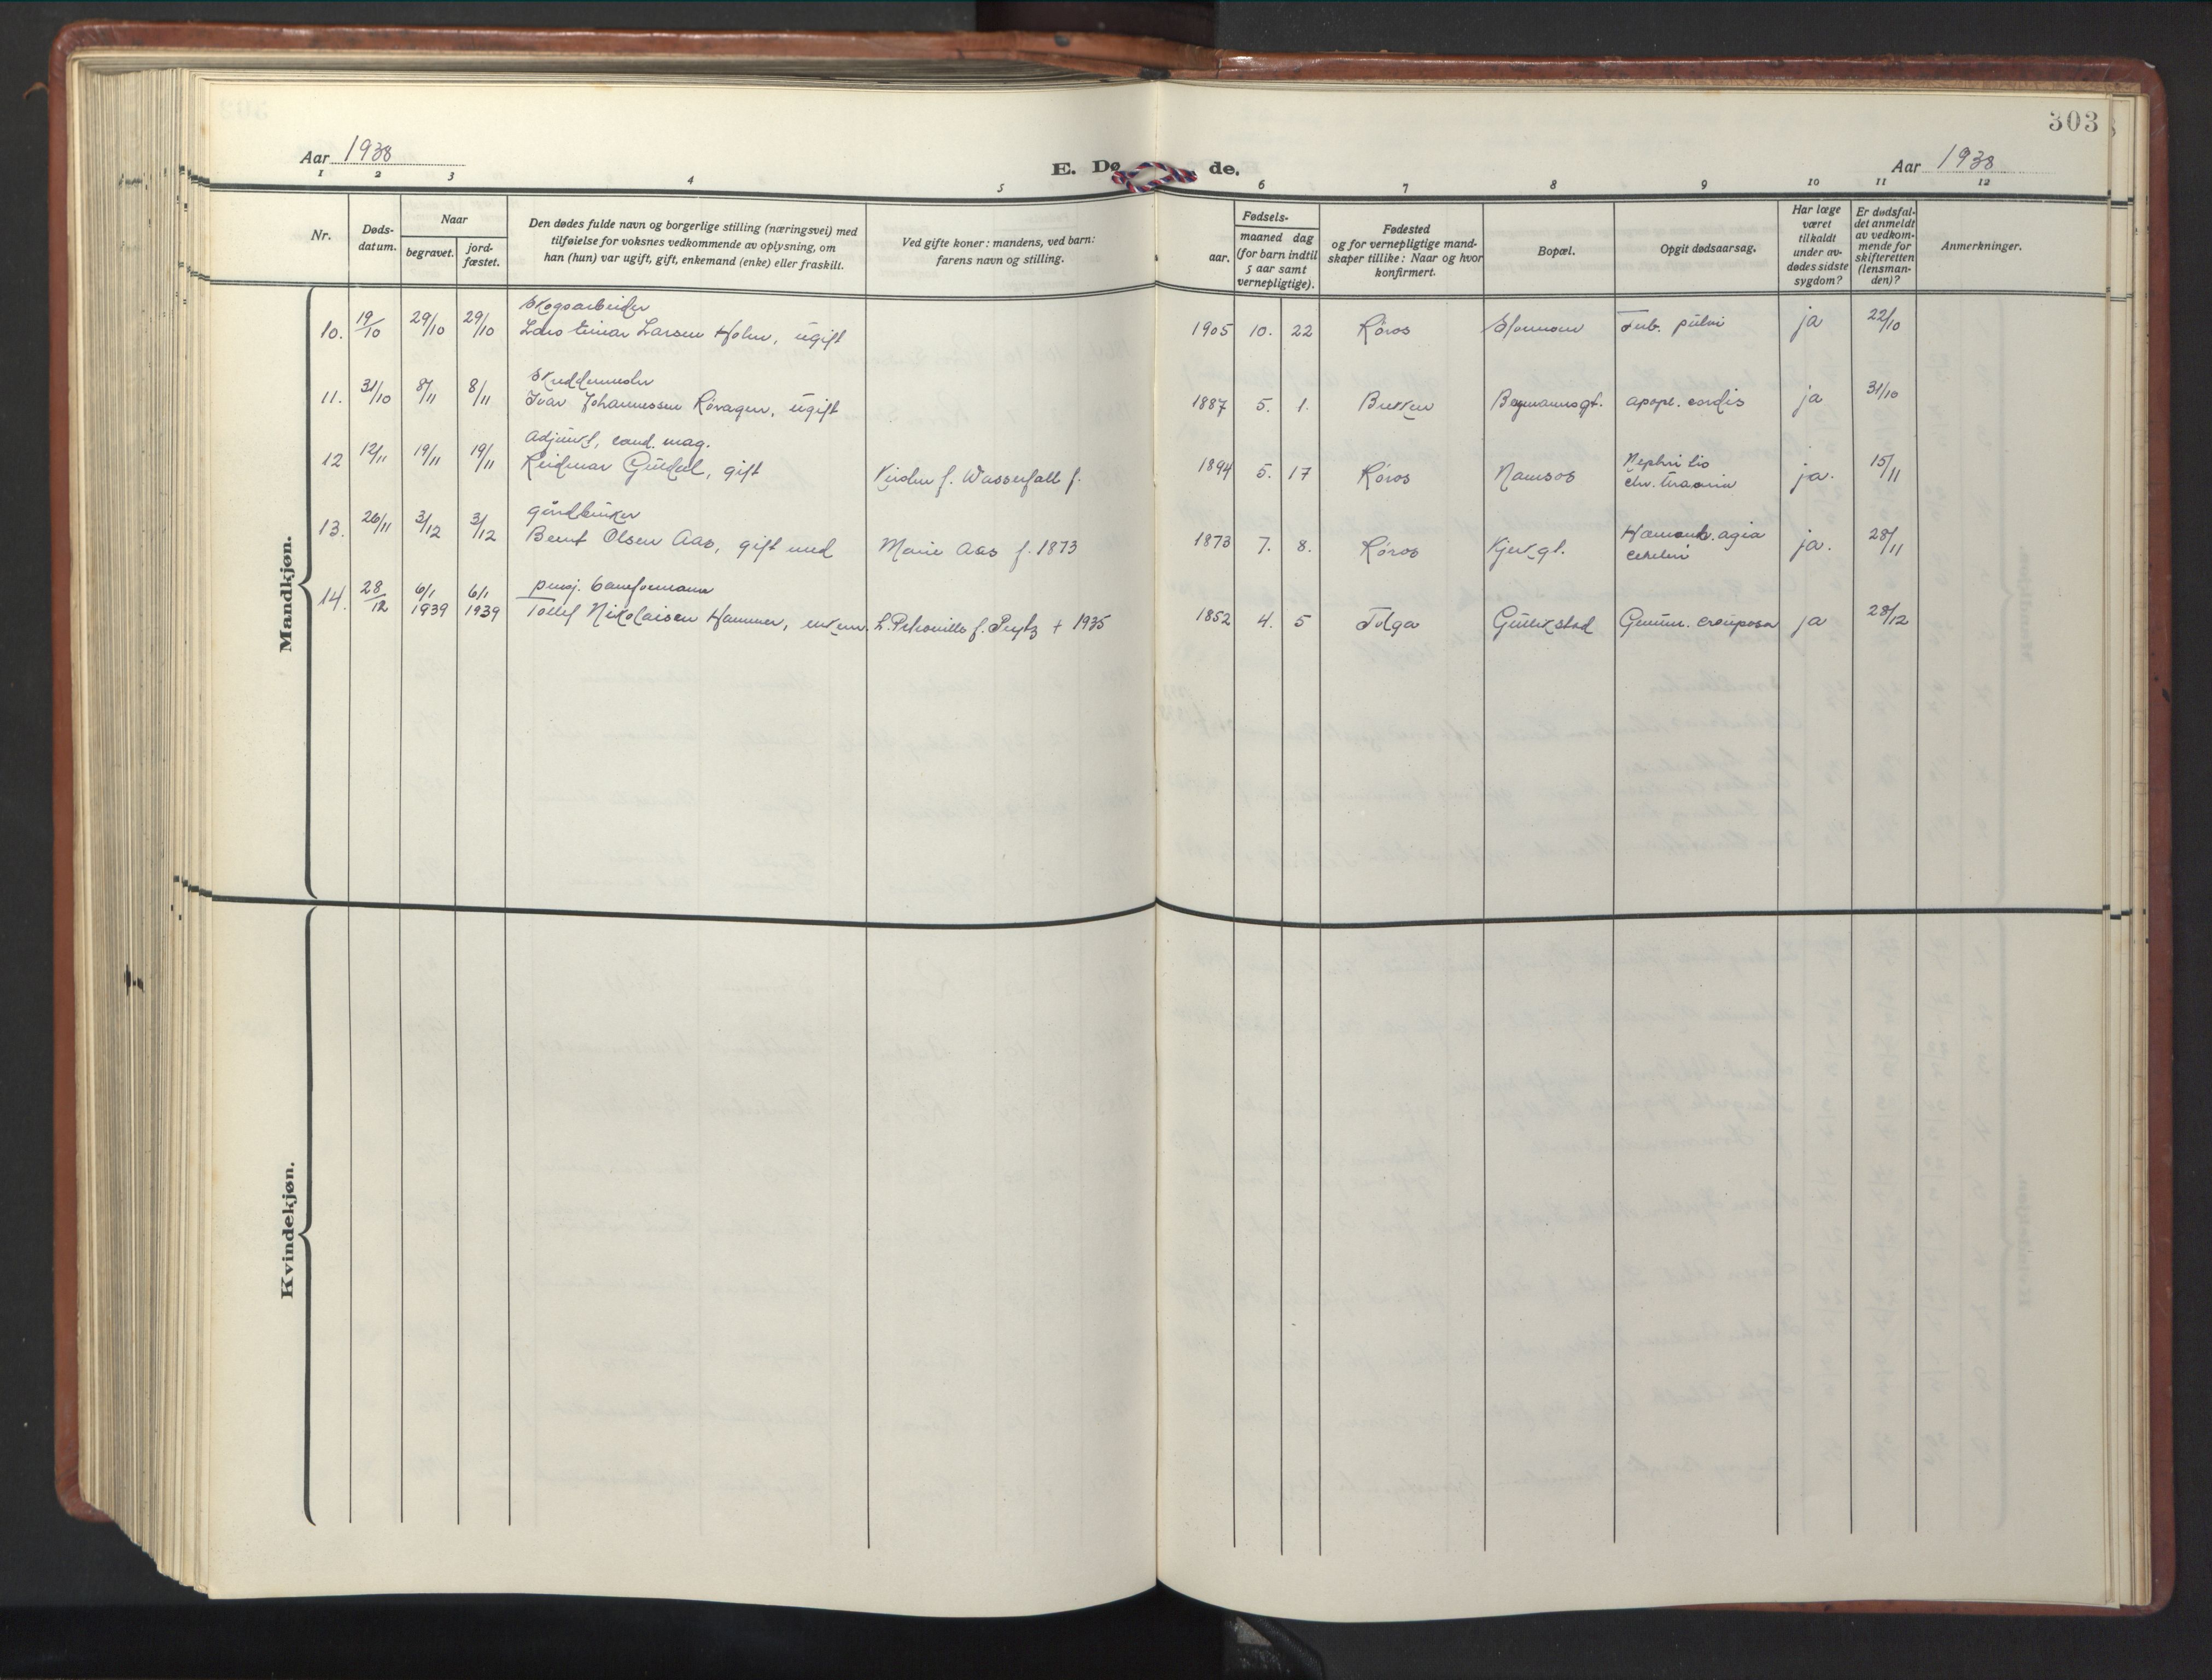 303
Aar 1938
E. Dø de.
Aar 1938
1 2 3 4 5 6 7 8 9 10 11 12
Nr.
Døds-
datum.
Naar
begravet.
jord-
fæstet.
Den dødes fulde navn og borgerlige stilling (næringsvei) med
tilføielse for voksnes vedkommende av oplysning, om
han (hun) var ugift, gift, enkemand (enke) eller fraskilt.
Ved gifte koner: mandens, ved barn:
farens navn og stilling.
Fødsels-
aar.
maaned dag
(for barn indtil
5 aar samt
vernepligtige).
Fødested
og for vernepligtige mand-
skaper tillike: Naar og hvor
konfirmert.
Bopæl.
Opgit dødsaarsag.
Har læge
været
tilkaldt
under av-
dødes sidste
sygdom?
Er dødsfal-
det anmeldt
av vedkom-
mende for
skifteretten
(lensman-
den)?
Anmerkninger.
Mandkjøn.
Skogsarbeider
10. 19/10 29/10 29/10 Lars Einar Larsen Holm, ugift 1905 10. 22 Røros Tub. pulm ja 22/10
Skreddermester
11. 31/10 8/11 8/11 Ivar Johannessen Røragen, ugift 1887 5. 1. Brekken Bergmannsgt. apopl. cordis ja 31/10
Adjunkt, cand. mag.
12 12/11 19/11 19/11 Reidmar Guldal, gift f. Wasserfall f. 1894 5. 17 Røros Namsos Nephritis
chr. Uraemia ja. 15/11
gårdbruker
13. 26/11 3/12 3/12 Bernt Olsen Aas, gift med Marie Aas f. 1873 1873 7. 8. Røros Kjerkgt. Hæmorrh. agia
cerebri ja. 28/11
pensj. baneformann
14. 28/12 6/1 1939 6/1 1939 Tollef Nikolaisen Hammer, enkem. L. Petronille f. Peytz + 1935 1852 4. 5 Tolga Gullikstad crouposa ja 28/12
Kvindekjøn.